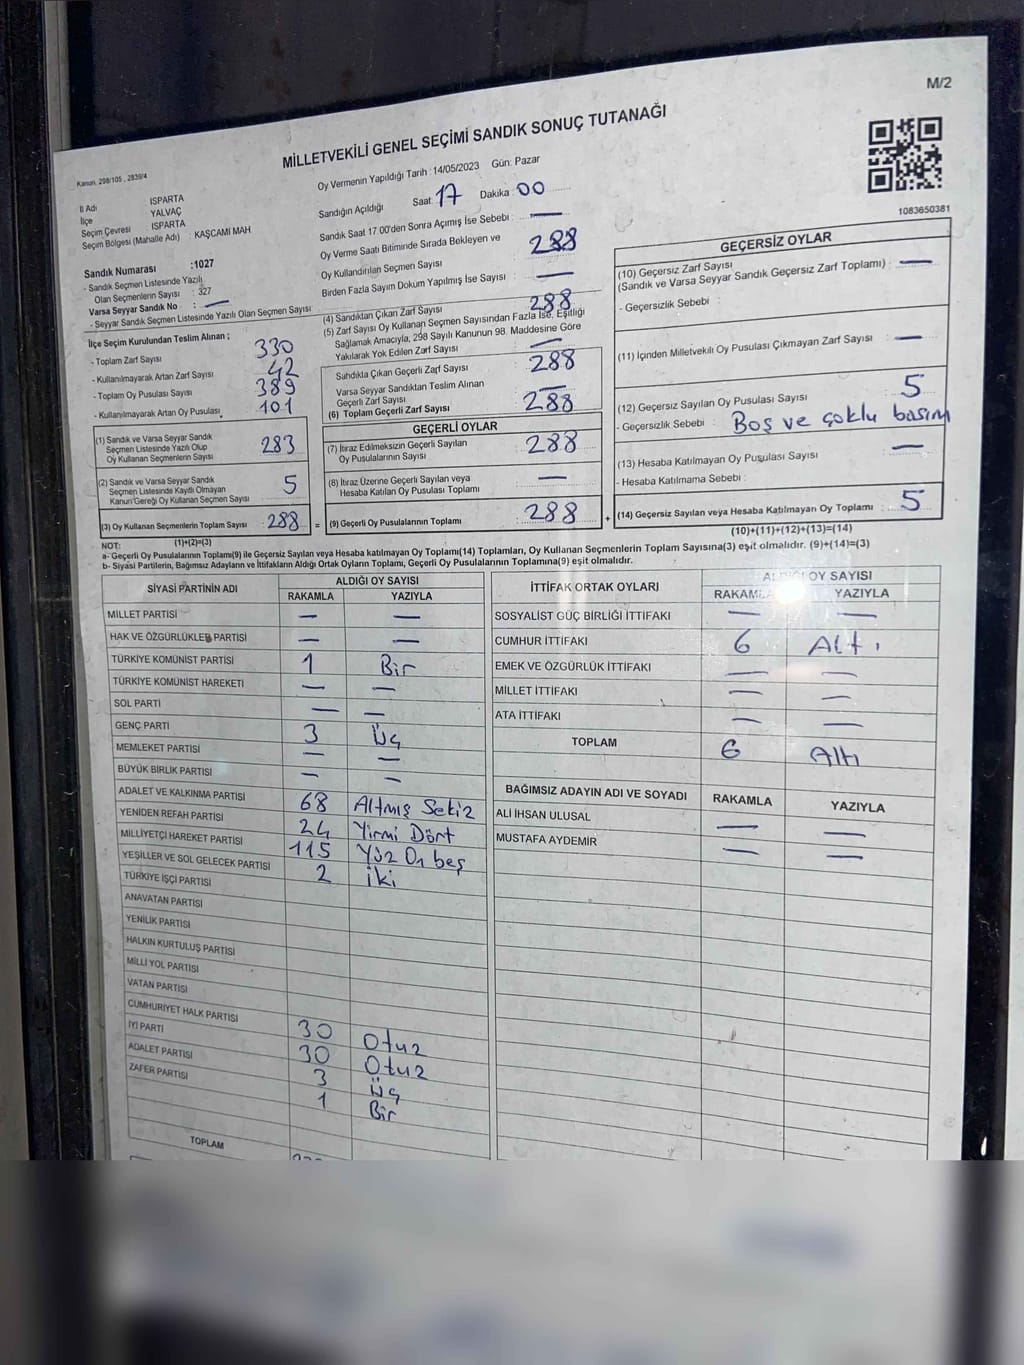 M/2
MİLLETVEKİLİ GENEL SEÇİMİ SANDIK SONUÇ TUTANAĞI
Kanun, 298/105 , 2839/4
1083650381
İl Adı : ISPARTA
İlçe : YALVAÇ
Seçim Çevresi : ISPARTA
Seçim Bölgesi (Mahalle Adı) : KAŞCAMI MAH
Sandık Numarası :1027
- Sandık Seçmen Listesinde Yazılı
Olan Seçmenlerin Sayısı : 327
Varsa Seyyar Sandık No : —
- Seyyar Sandık Seçmen Listesinde Yazılı Olan Seçmen Sayısı
İlçe Seçim Kurulundan Teslim Alınan ;
- Toplam Zarf Sayısı 330
- Kullanılmayarak Artan Zarf Sayısı 42
- Toplam Oy Pusulası Sayısı 389
- Kullanılmayarak Artan Oy Pusulası : 101
(1) Sandık ve Varsa Seyyar Sandık
Seçmen Listesinde Yazılı Olup
Oy Kullanan Seçmenlerin Sayısı 283
(2) Sandık ve Varsa Seyyar Sandık
Seçmen Listesinde Kayıtlı Olmayan
Kanun Gereği Oy Kullanan Seçmen Sayısı 5
(3) Oy Kullanan Seçmenlerin Toplam Sayısı : 288
(1)+(2)=(3)
Oy Vermenin Yapıldığı Tarih : 14/05/2023 Gün: Pazar
Sandığın Açıldığı Saat: 17 Dakika : 00
Sandık Saat 17 00'den Sonra Açımış İse Sebebi : —
Oy Verme Saati Bitiminde Sırada Bekleyen ve
Oy Kullandırılan Seçmen Sayısı : 288
Birden Fazla Sayım Döküm Yapılmış İse Sayısı : —
(4) Sandıktan Çıkan Zarf Sayısı 288
(5) Zarf Sayısı Oy Kullanan Seçmen Sayısından Fazla İse, Eşitliği
Sağlamak Amacıyla, 298 Sayılı Kanunun 98. Maddesine Göre
Yakılarak Yok Edilen Zarf Sayısı —
Sandıkta Çıkan Geçerli Zarf Sayısı 288
Varsa Seyyar Sandıktan Teslim Alınan
Geçerli Zarf Sayısı —
(6) Toplam Geçerli Zarf Sayısı 288
GEÇERLİ OYLAR
(7) İtiraz Edilmeksizin Geçerli Sayılan
Oy Pusulalarının Sayısı 288
(8) İtiraz Üzerine Geçerli Sayılan veya
Hesaba Katılan Oy Pusulası Toplamı —
= (9) Geçerli Oy Pusulalarının Toplamı 288
GEÇERSİZ OYLAR
(10) Geçersiz Zarf Sayısı
(Sandık ve Varsa Seyyar Sandık Geçersiz Zarf Toplamı) : —
- Geçersizlik Sebebi :
(11) İçinden Milletvekili Oy Pusulası Çıkmayan Zarf Sayısı : —
(12) Geçersiz Sayılan Oy Pusulası Sayısı : 5
- Geçersizlik Sebebi : Boş ve çoklu basım
(13) Hesaba Katılmayan Oy Pusulası Sayısı : —
- Hesaba Katılmama Sebebi :
+ (14) Geçersiz Sayılan veya Hesaba Katılmayan Oy Toplamı : 5
(10)+(11)+(12)+(13)=(14)
NOT:
a- Geçerli Oy Pusulalarının Toplamı(9) ile Geçersiz Sayılan veya Hesaba katılmayan Oy Toplamı(14) Toplamları, Oy Kullanan Seçmenlerin Toplam Sayısına(3) eşit olmalıdır. (9)+(14)=(3)
b- Siyasi Partilerin, Bağımsız Adayların ve İttifakların Aldığı Ortak Oyların Toplamı, Geçerli Oy Pusulalarının Toplamına(9) eşit olmalıdır.
SİYASİ PARTİNİN ADI ALDIĞI OY SAYISI
RAKAMLA YAZIYLA
MİLLET PARTİSİ — —
HAK VE ÖZGÜRLÜKLER PARTİSİ — —
TÜRKİYE KOMÜNİST PARTİSİ 1 Bir
TÜRKİYE KOMÜNİST HAREKETİ — —
SOL PARTİ — —
GENÇ PARTİ 3 Üç
MEMLEKET PARTİSİ — —
BÜYÜK BİRLİK PARTİSİ — —
ADALET VE KALKINMA PARTİSİ 68 Altmış Sekiz
YENİDEN REFAH PARTİSİ 24 Yirmi Dört
MİLLİYETÇİ HAREKET PARTİSİ 115 Yüz On beş
YEŞİLLER VE SOL GELECEK PARTİSİ 2 İki
TÜRKİYE İŞÇİ PARTİSİ
ANAVATAN PARTİSİ
YENİLİK PARTİSİ
HALKIN KURTULUŞ PARTİSİ
MİLLİ YOL PARTİSİ
VATAN PARTİSİ
CUMHURİYET HALK PARTİSİ 30 Otuz
İYİ PARTİ 30 Otuz
ADALET PARTİSİ 3 Üç
ZAFER PARTİSİ 1 Bir
TOPLAM
İTTİFAK ORTAK OYLARI ALDIĞI OY SAYISI
RAKAMLA YAZIYLA
SOSYALİST GÜÇ BİRLİĞİ İTTİFAKI — —
CUMHUR İTTİFAKI 6 Altı
EMEK VE ÖZGÜRLÜK İTTİFAKI — —
MİLLET İTTİFAKI — —
ATA İTTİFAKI — —
TOPLAM 6 Altı
BAĞIMSIZ ADAYIN ADI VE SOYADI RAKAMLA YAZIYLA
ALİ İHSAN ULUSAL — —
MUSTAFA AYDEMİR — —